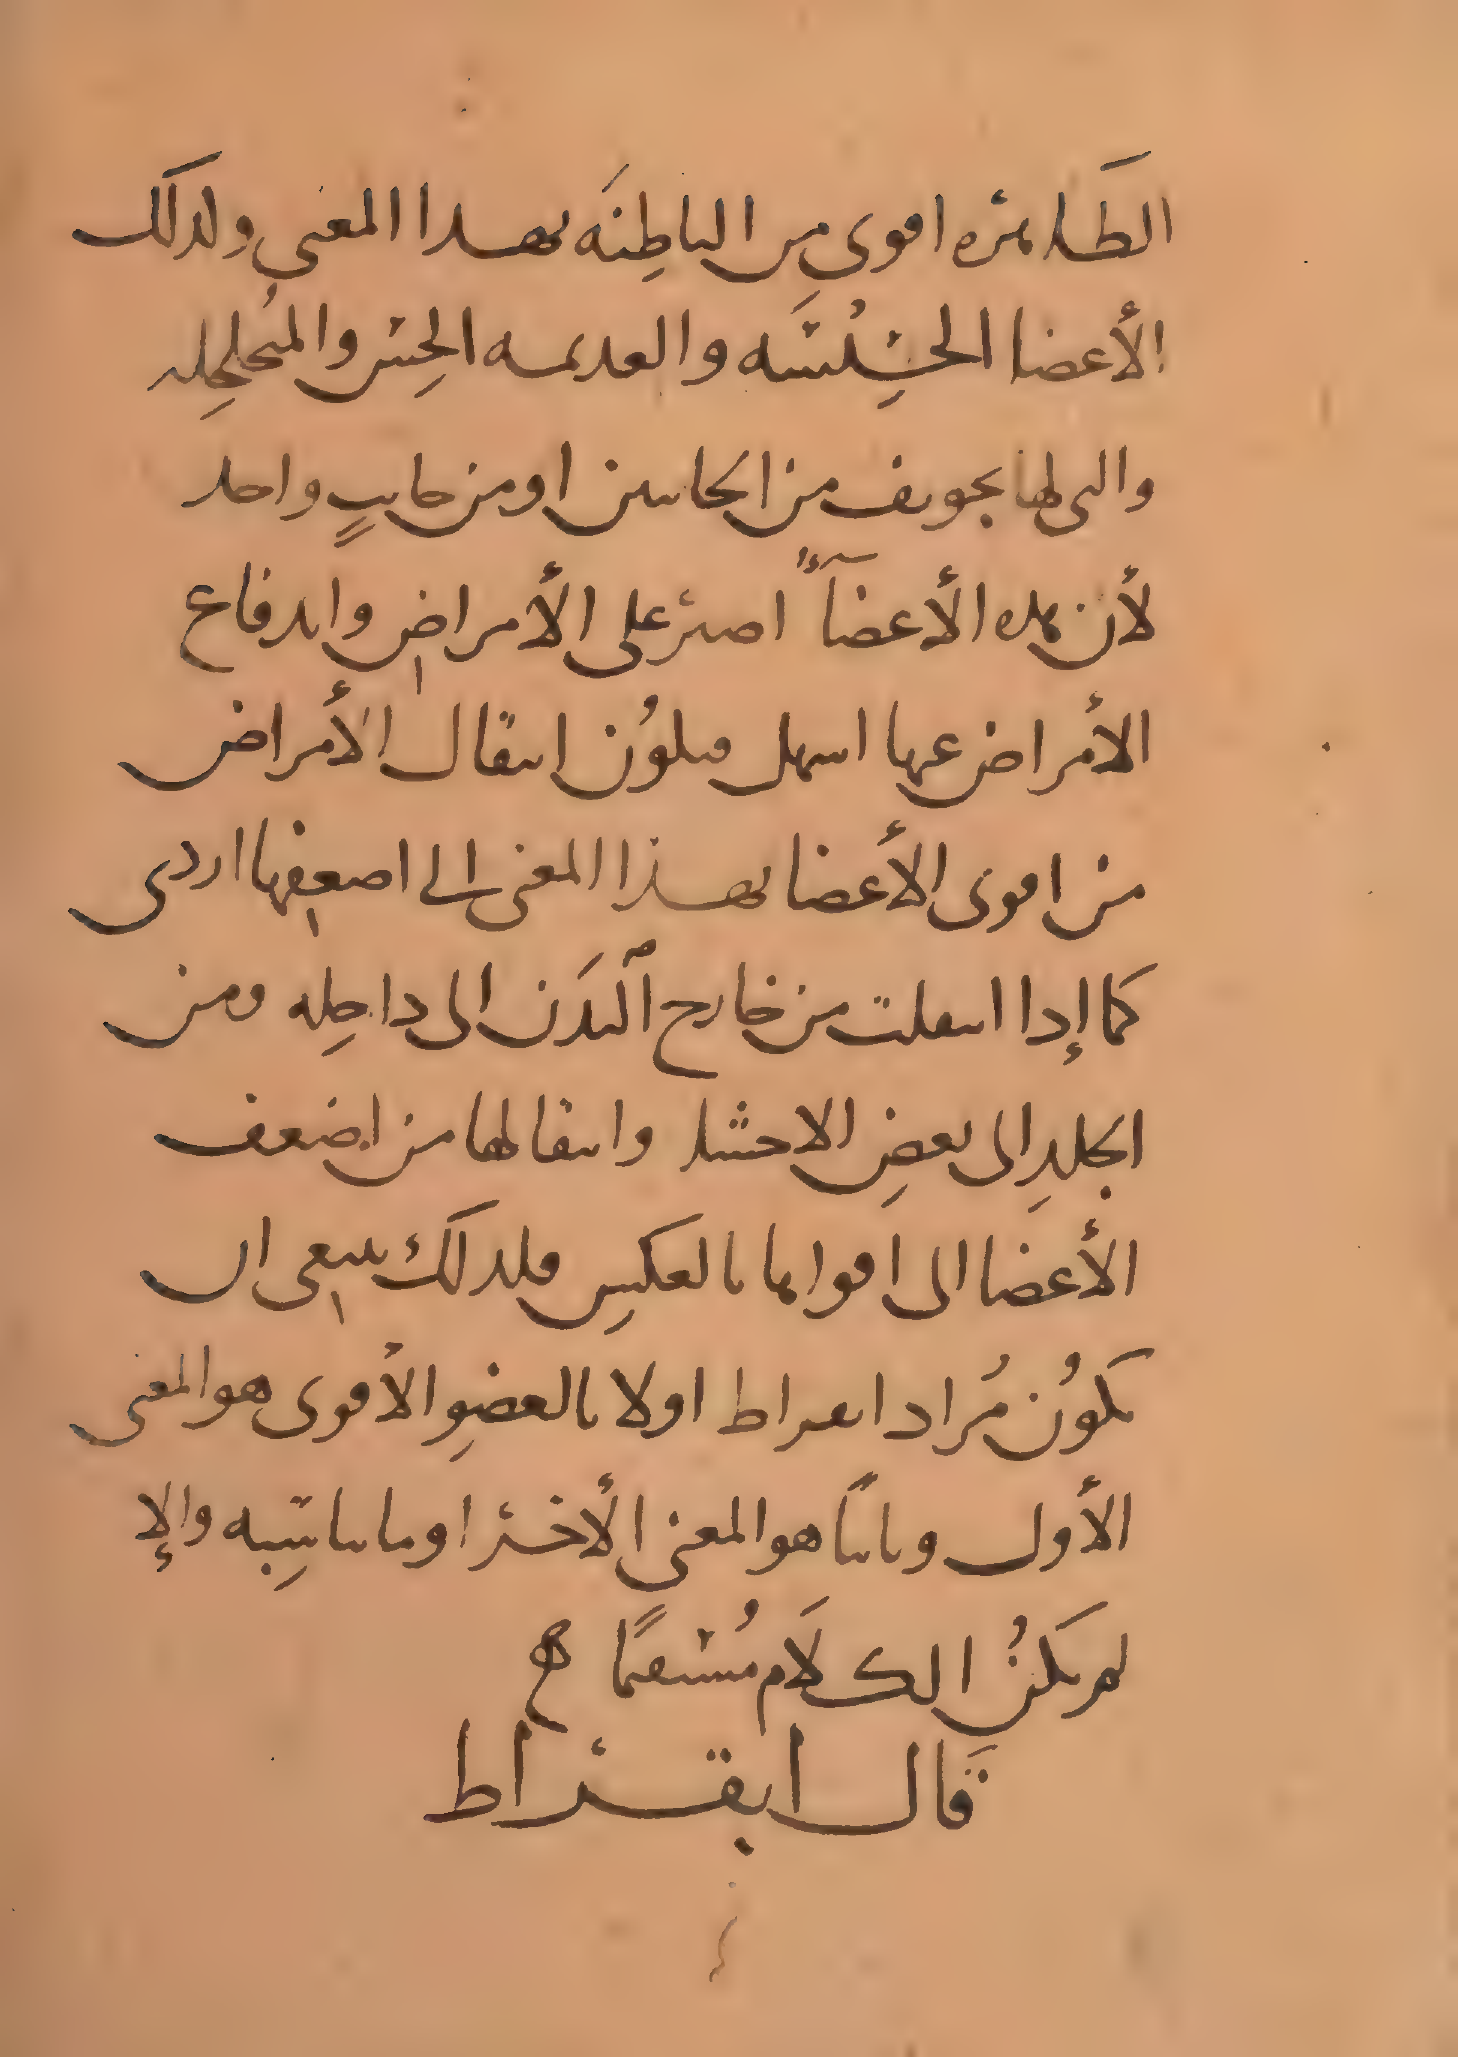 الظاهره اقوى من الباطِنَه بهذا المعنى ولذلك
الأعضا الخسيسَه والعديمه الحِس والمُخلخله
والتى لها تجويف من الجانبين او من جانبٍ واحد
لأن هذه الأعضآءُ اصبر على الأمراض واندفاع
الأمراض عنها اسهل فيكوُن انتقال الأمراض
من اقوى الأعضا بهذا المعنى الى اضعفها اردى
كما إذا انتقلت من خارج ٱلبَدَن الى داخِله ومن
الجلدِ الى بعضِ الاحشا وانتقالها من اضعف
الأعضا الى اقواها بالعكسِ فلذلك ينبغى ان
يكوُن مُراد ابقراط اولا بالعضوِ الأقوى هو المعنى
الأول وثانياً هو المعنى الأخر او ما يناسِبه وإلا
لم يكنُ الكلَام مُستقيمًا
قَال ابقراط